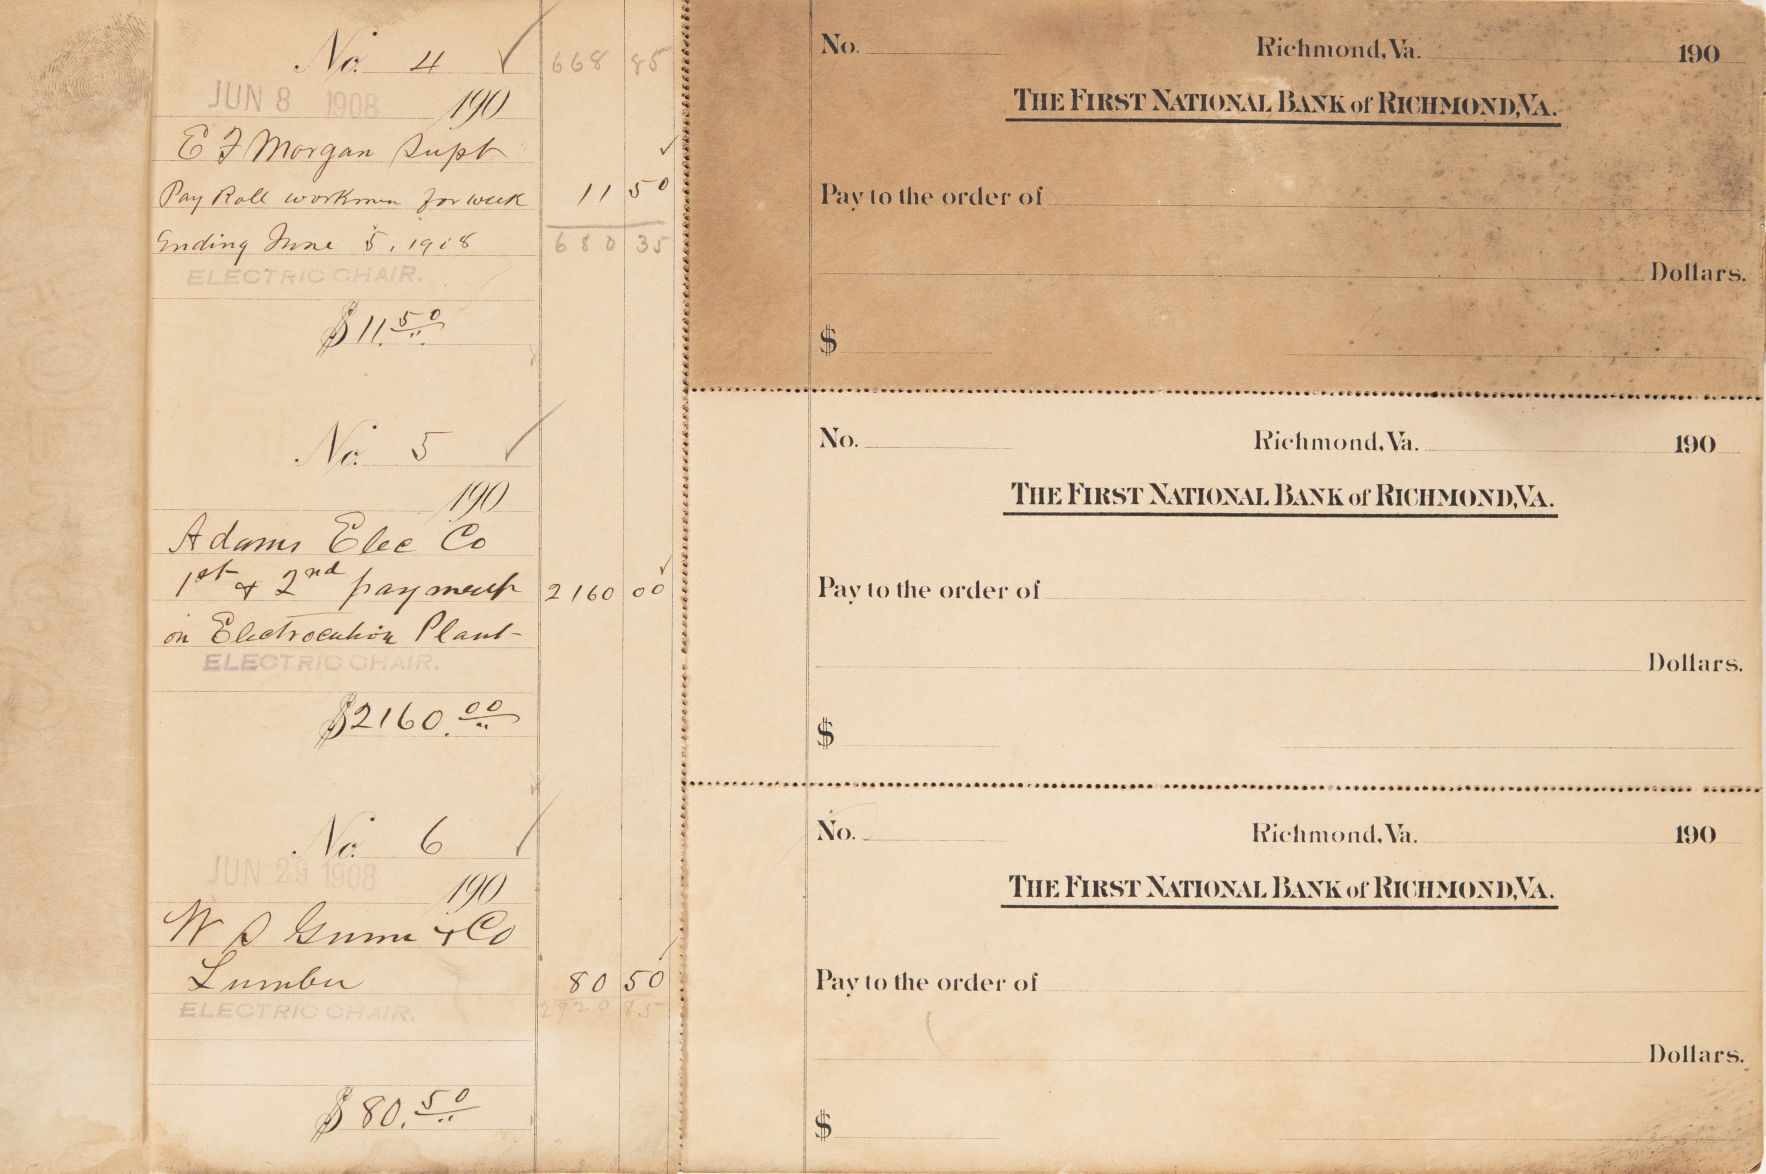 No. 4 668 85
JUN 8 1908 190
E F Morgan Supt
Pay Roll workmen for week 11 50
Ending June 5, 1908 680 35
ELECTRIC CHAIR.
$11.50
No. 5
190
Adams Elec Co
1st & 2nd payment 2160 00
on Electrocution Plant
ELECTRIC CHAIR.
$2160.00
No. 6
JUN 29 1908 190
W S Gunn & Co
Lumber 80 50
ELECTRIC CHAIR. 2920 85
$80.50
No. Richmond, Va. 190
THE FIRST NATIONAL BANK of RICHMOND, VA.
Pay to the order of
Dollars.
$
No. Richmond, Va. 190
THE FIRST NATIONAL BANK of RICHMOND, VA.
Pay to the order of
Dollars.
$
No. Richmond, Va. 190
THE FIRST NATIONAL BANK of RICHMOND, VA.
Pay to the order of
Dollars.
$